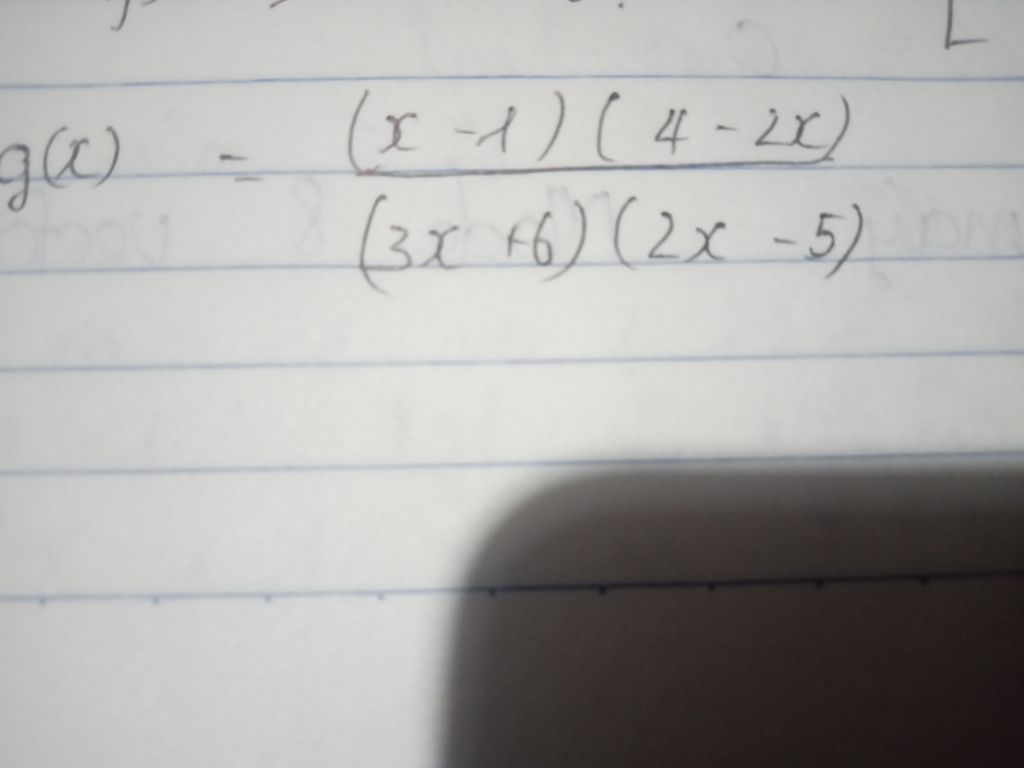 g(x) = (x - 1) ( 4 - 2x)
(3x +6) (2x - 5)